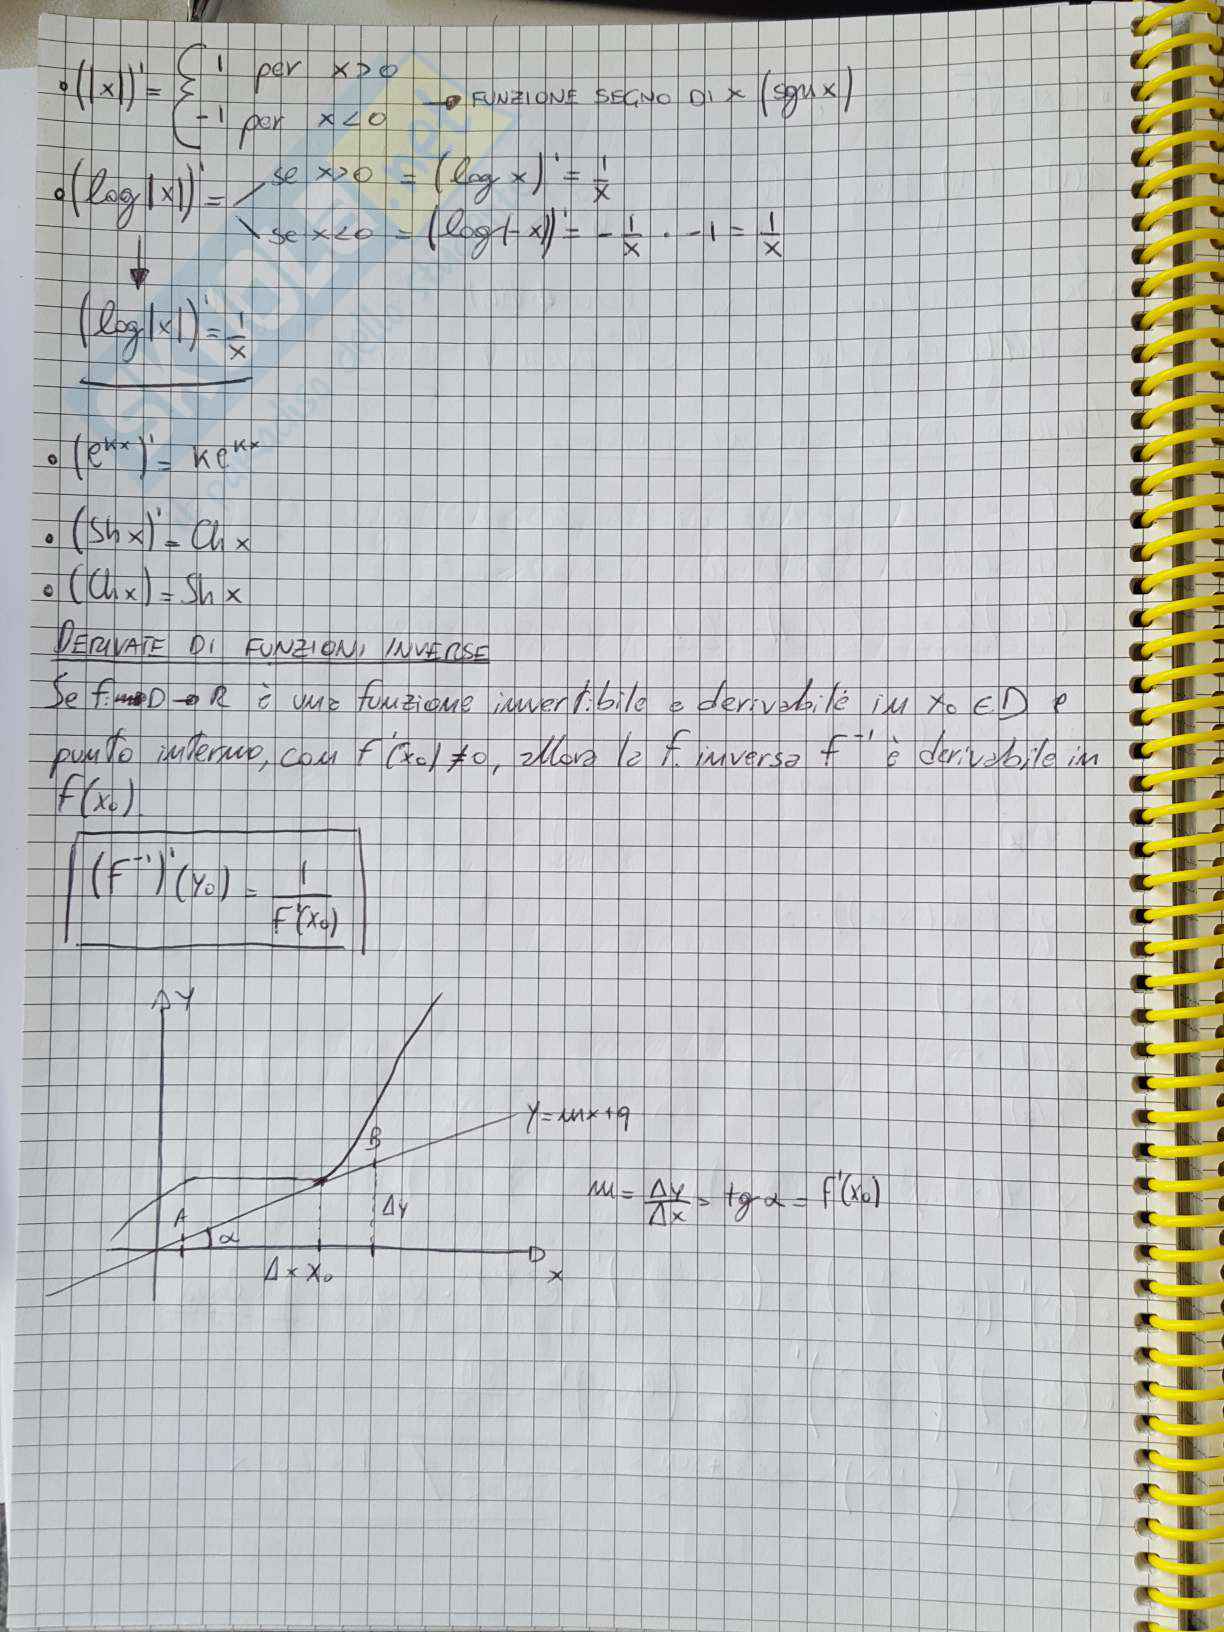 • (|x|)' = { 1 per x>0
-1 per x<0 → FUNZIONE SEGNO DI x (sgn x)
• (log|x|)' = se x>0 = (log x)' = 1/x
se x<0 = (log(-x))' = -1/x · -1 = 1/x
(log|x|)' = 1/x
• (e^kx)' = ke^kx
• (Sh x)' = Ch x
• (Ch x) = Sh x
DERIVATE DI FUNZIONI INVERSE
Se f: D → R è una funzione invertibile e derivabile in x₀ ∈ D e
punto interno, con f'(x₀) ≠ 0, allora la f. inversa f⁻¹ è derivabile in
f(x₀).
(F⁻¹)'(y₀) = 1/F'(x₀)
Y
Y = mx+q
B
m = Δy/Δx = tg α = f'(x₀)
A
α
Δy
Δx x₀
x
SKUOLA.net